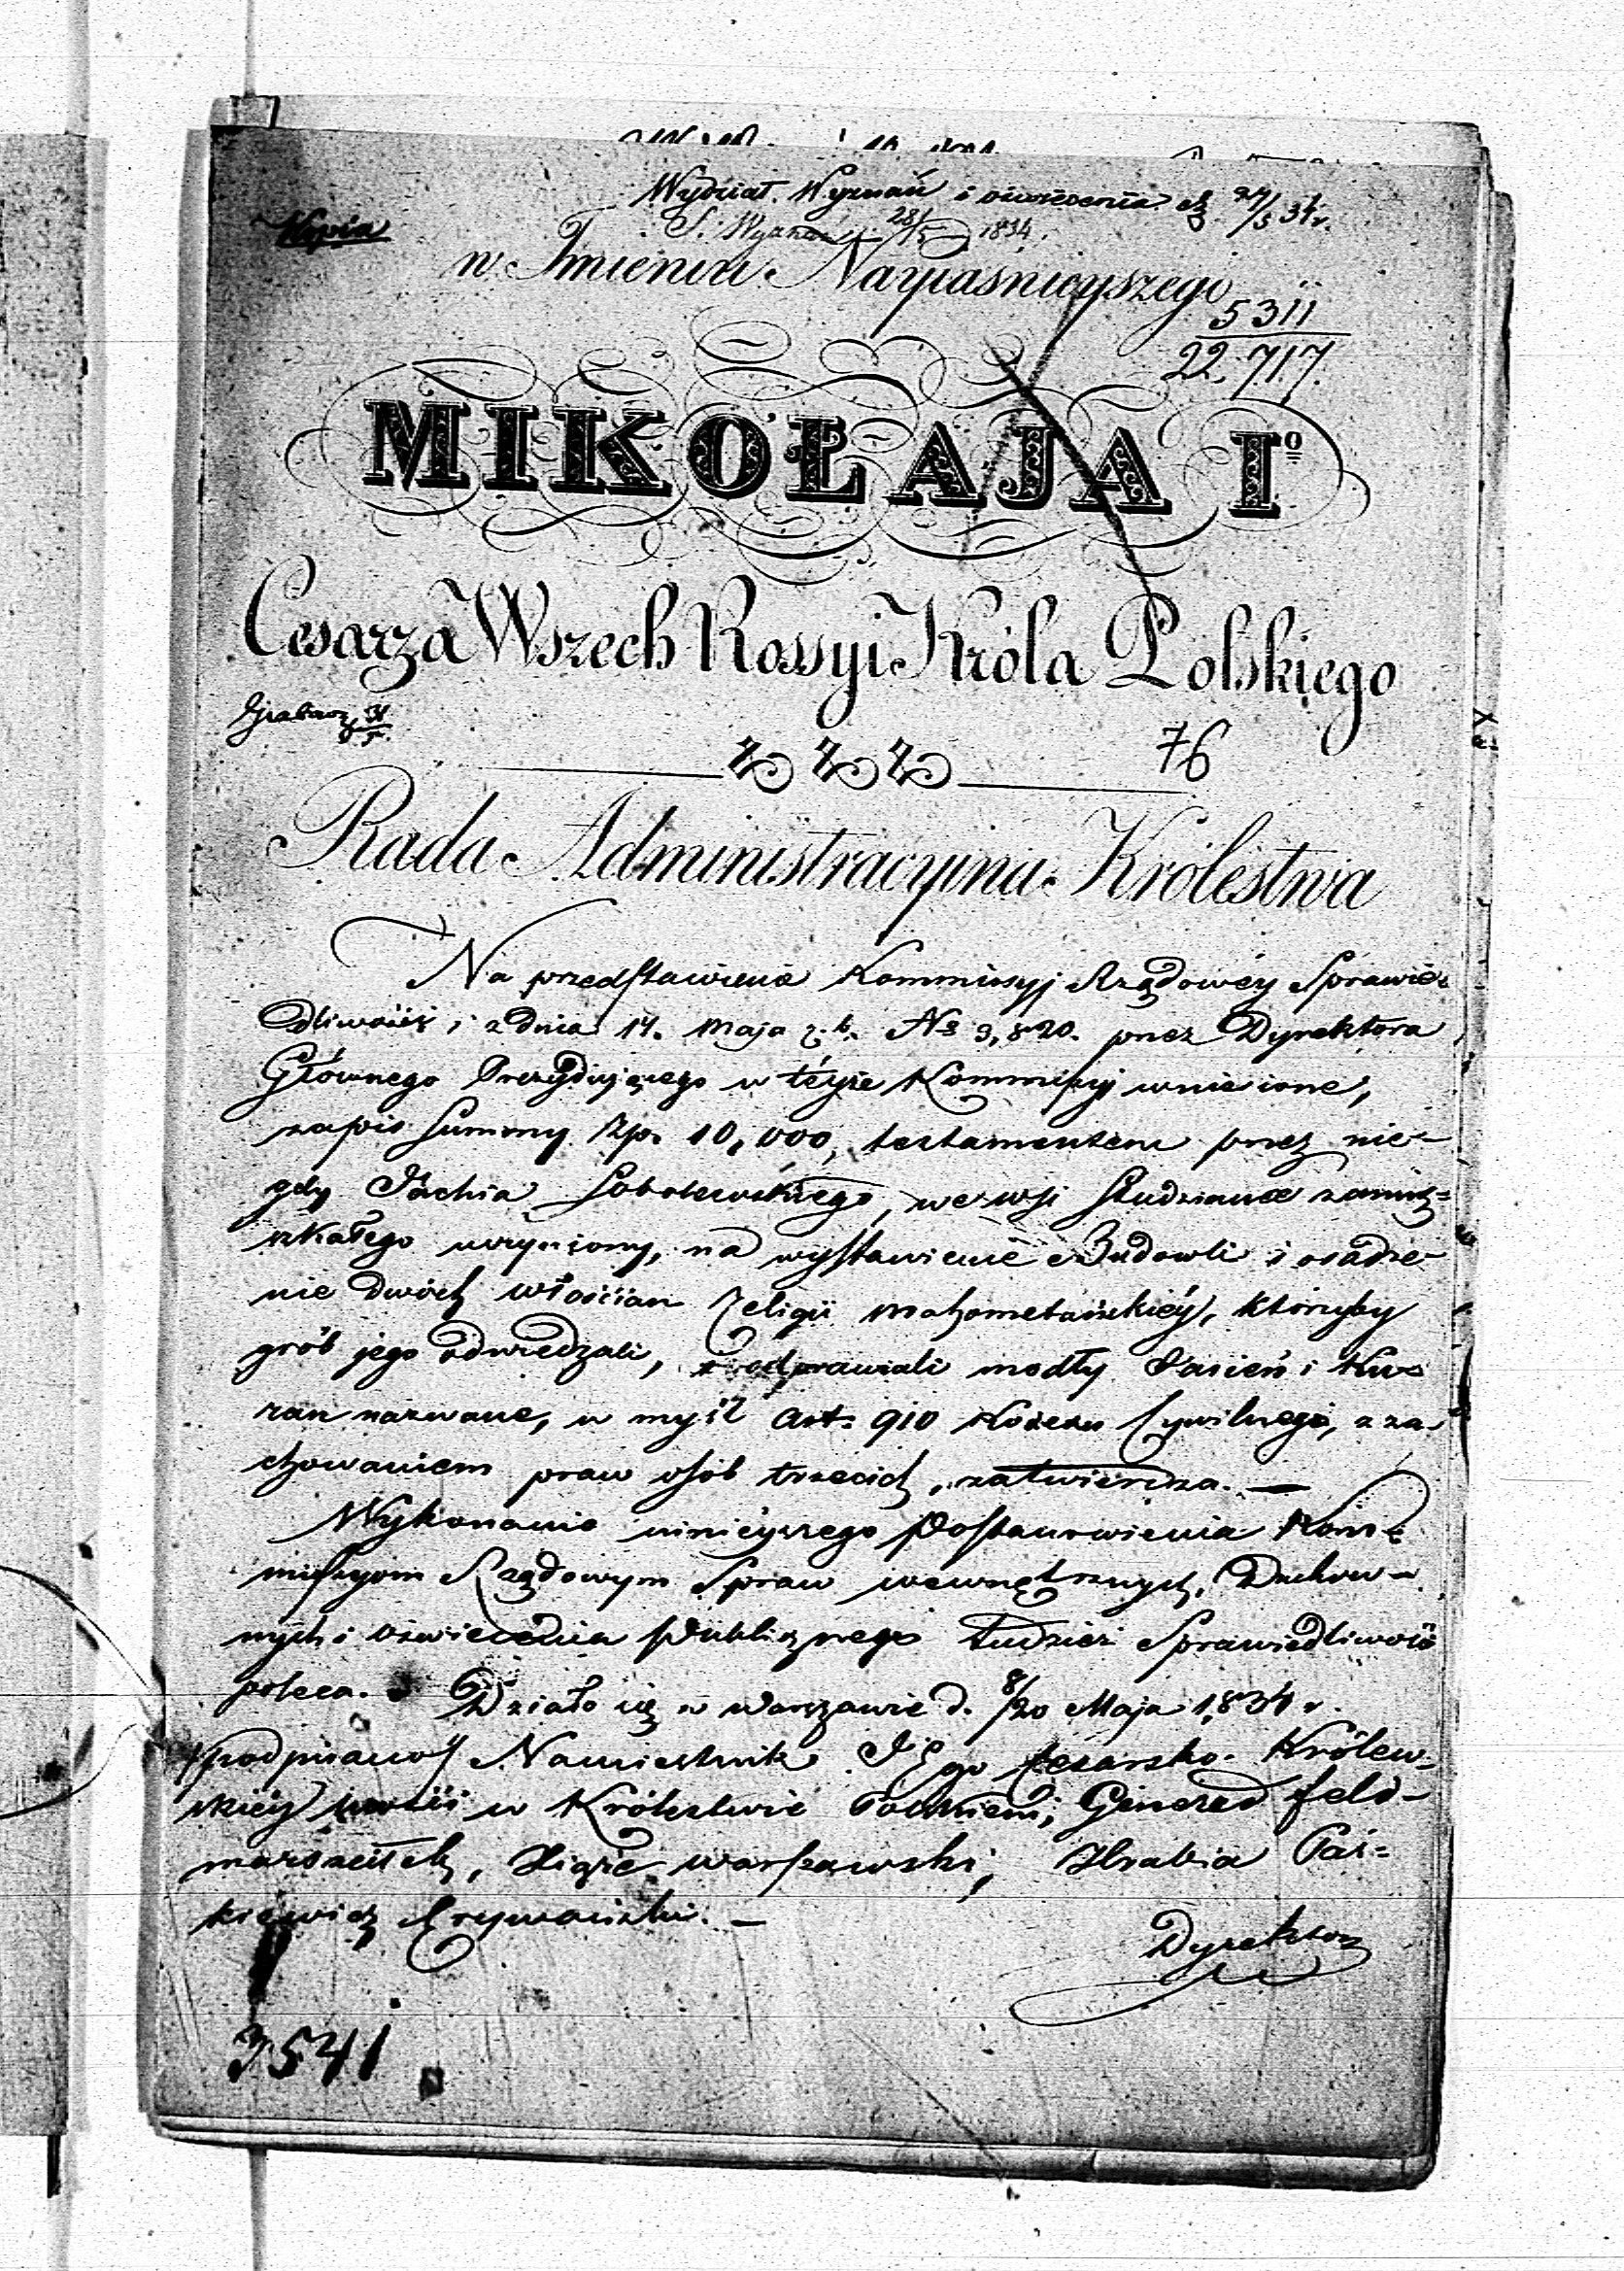 Wydział Wyznań i oświecenia
Kopia
28/5 1834.
w Imieniu Nayiaśnieyszego
5311
22.717.
MIKOŁAJA Iº
Cesarza Wszech Rossyi Króla Polskiego
76
Rada Administracyina Królestwa
Na przedstawienie Kommissyj Rządowéy Sprawie-
dliwości, z dnia 14. Maja r. b. Nº 9,820. przez Dyrektora
Głównego Prezydującego w téyże Kommissyj wniesione,
zapis Summy Złp. 10,000, testamentem przez nie-
gdy Jachia Sobolewskiego, we wsi Studziance zamię-
szkałego uczyniony, na wystawienie Budowli i osadze-
nie dwóch włościan Religii Mahometańskiéy, którzyby
grób jego odwiedzali, i odprawiali modły Jasień i Kur-
ran nazwane, w myśl Art. 910 Kodexu Cywilnego, z za-
chowaniem praw osób trzecich, zatwierdza. —
Wykonanie ninieyszego Postanowienia Kom-
missyom Rządowym Spraw wewnętrznych, Duchow-
nych i Oświecenia Publicznego tudzież Sprawiedliwości
poleca. Działo się w Warszawie d. 8/20 Maja 1834 r.
(podpisano) Namiestnik Jego Cesarsko-Królew-
skiéy Mości w Królestwie Polskiem, Generał Feld-
marszałek, Xiąże Warszawski, Hrabia Pas-
kiewicz Erywański. —
Dyrektor
3541